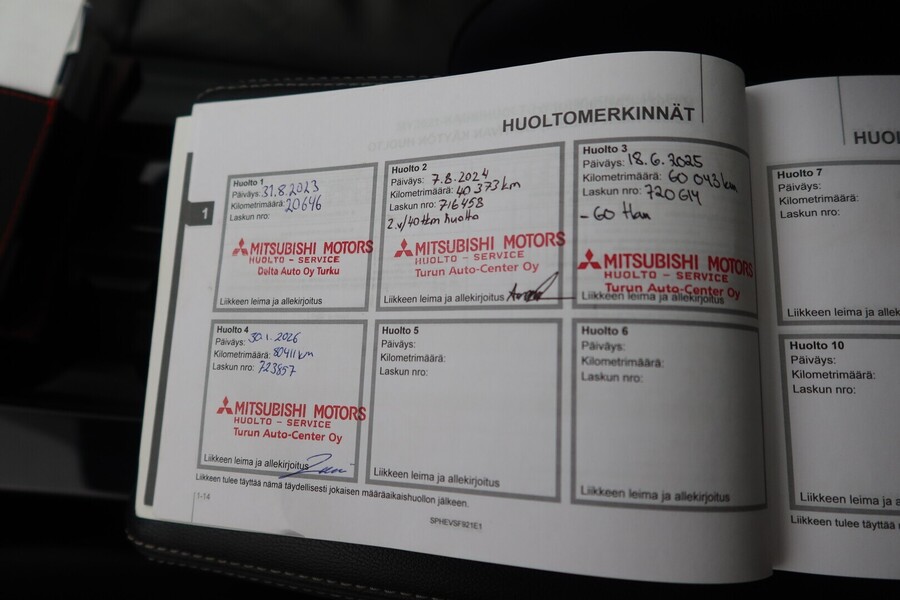 HUOLTOMERKINNÄT
1
Huolto 1
Päiväys: 31.8.2023
Kilometrimäärä: 20646
Laskun nro:
MITSUBISHI MOTORS
HUOLTO - SERVICE
Delta Auto Oy Turku
Huolto 2
Päiväys: 7.8.2024
Kilometrimäärä: 40 373 km
Laskun nro: 716458
2.v/40tkm huolto
MITSUBISHI MOTORS
HUOLTO - SERVICE
Turun Auto-Center Oy
Liikkeen leima ja allekirjoitus
Huolto 3
Päiväys: 18.6.2025
Kilometrimäärä: 60 043 km
Laskun nro: 720614
MITSUBISHI MOTORS
HUOLTO - SERVICE
Turun Auto-Center Oy
Liikkeen leima ja allekirjoitus
Liikkeen leima ja allekirjoitus
Huolto 4
Päiväys: 30.1.2026
Kilometrimäärä: 80411 km
Laskun nro: 723857
MITSUBISHI MOTORS
HUOLTO - SERVICE
Turun Auto-Center Oy
Liikkeen leima ja allekirjoitus
Huolto 5
Päiväys:
Kilometrimäärä:
Laskun nro:
Liikkeen leima ja allekirjoitus
Huolto 6
Päiväys:
Kilometrimäärä:
Laskun nro:
Liikkeen leima ja allekirjoitus
Liikkeen tulee täyttää nämä täydellisesti jokaisen määräaikaishuollon jälkeen.
1-14
SPHEVSF921E1
HUOL
Huolto 7
Päiväys:
Kilometrimäärä:
Laskun nro:
Liikkeen leima ja alle
Huolto 10
Päiväys:
Kilometrimäärä:
Laskun nro:
Liikkeen leima ja a
Liikkeen tulee täyttää